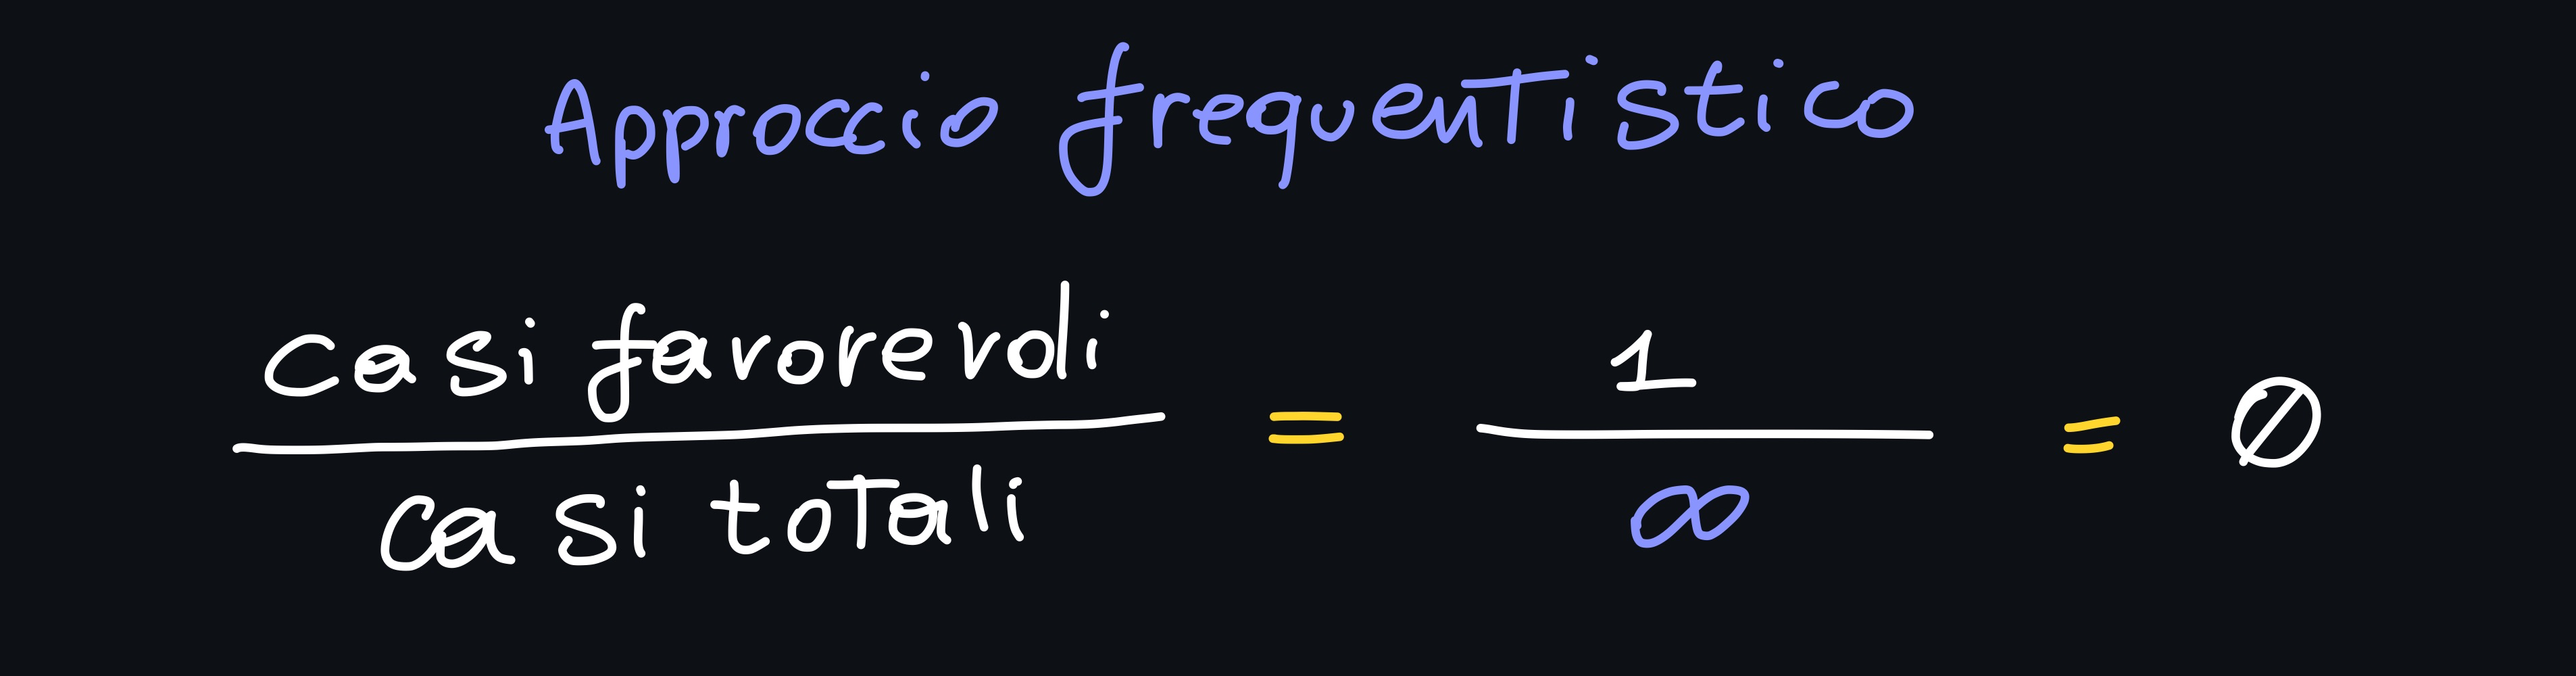 Approccio frequentistico
casi favorevoli
casi totali
=
1
∞
= 0